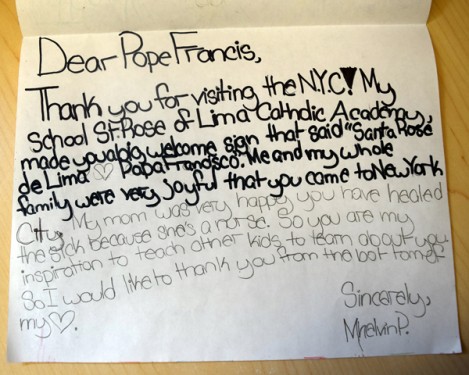 Dear Pope Francis,
Thank you for visiting the N.Y.C! My
School St. Rose of Lima Catholic Academy,
made you a big welcome sign that said "Santa Rose
de Lima ♡ Papa Francisco". Me and my whole
family were very joyful that you came to New York
City. My mom was very happy you have healed
the sick because she's a nurse. So you are my
inspiration to teach other kids to learn about you.
So I would like to thank you from the bottom of
my ♡.
Sincerely,
P.